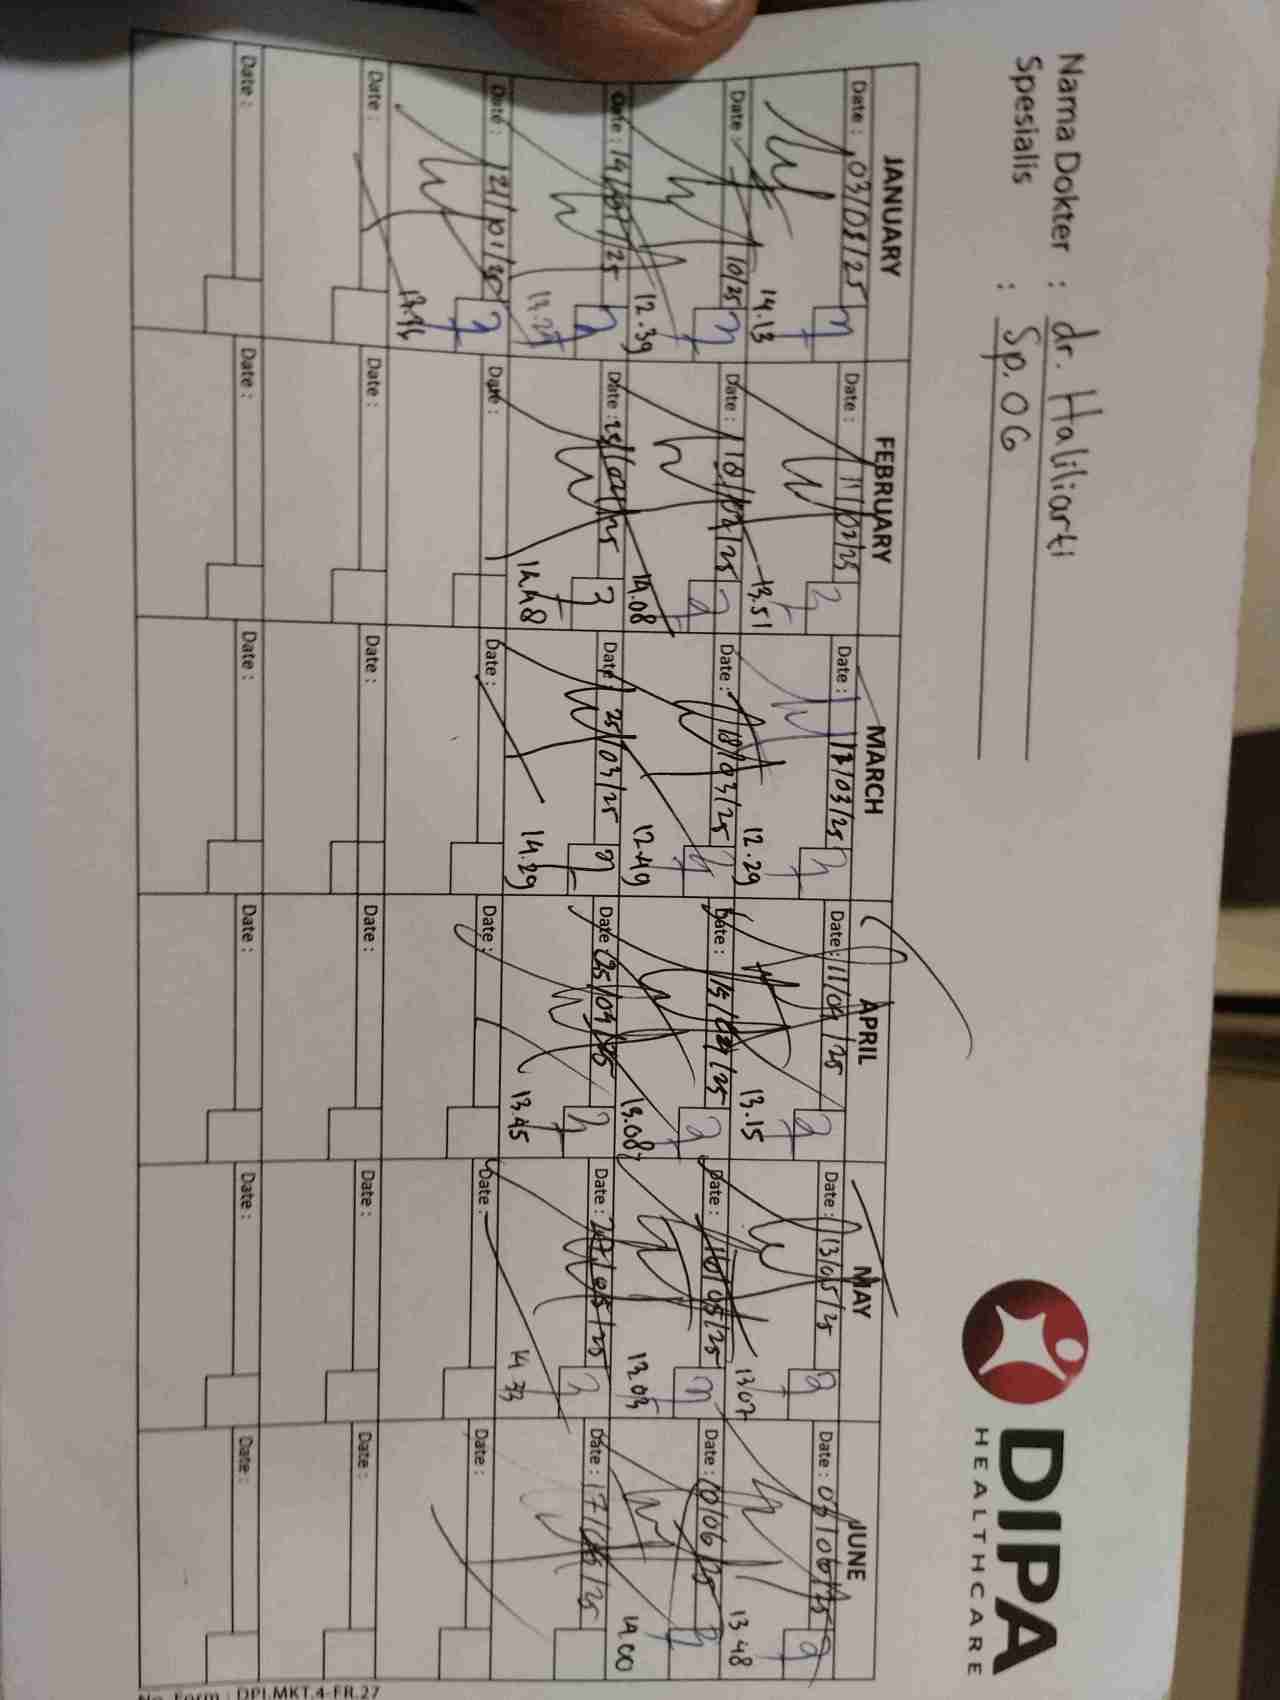 Nama Dokter : dr. Haliliarti
Spesialis : Sp.OG
DIPA
HEALTHCARE
JANUARY FEBRUARY MARCH APRIL MAY JUNE
Date : 03/01/25 Date : 11/02/25 Date : 13/03/25 Date : 11/04/25 Date : 13/05/25 Date : 03/06/25
14.13 13.51 12.29 13.15 13.07 13.48
Date : 10/25 Date : 18/02/25 Date : 18/03/25 Date : 15/04/25 Date : Date : 10/06/25
12.39 14.08 12.49 13.08 13.03 14.00
Date : 14/01/25 Date : 25/02/25 Date : 25/03/25 Date : 25/04/25 Date : 27/05/25 Date : 17/06/25
14.48 14.29 13.45 14.33
Date : 21/01/25 Date : Date : Date : Date : Date :
Date : Date : Date : Date : Date : Date :
Date : Date : Date : Date : Date : Date :
No. Form : DPI.MKT.4-FR.27